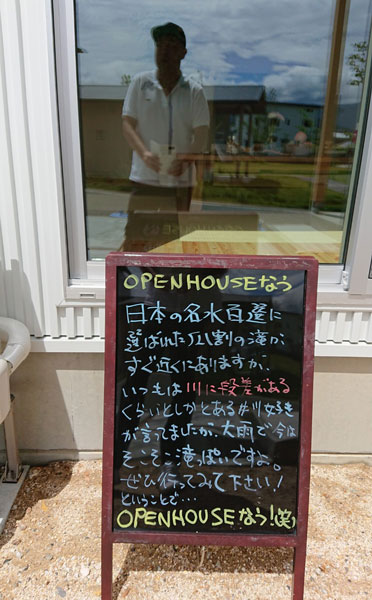 OPENHOUSEなう
日本の名水百選に
選ばれた瓜割の滝が、
すぐ近くにありますが、
いつもは川に段差がある
くらいとしかとある#川女子も
が言ってましたが、大雨で今は
そこそこ滝っぽいですよ。
ぜひ行ってみて下さい!
ということで…
OPENHOUSEなう!(笑)